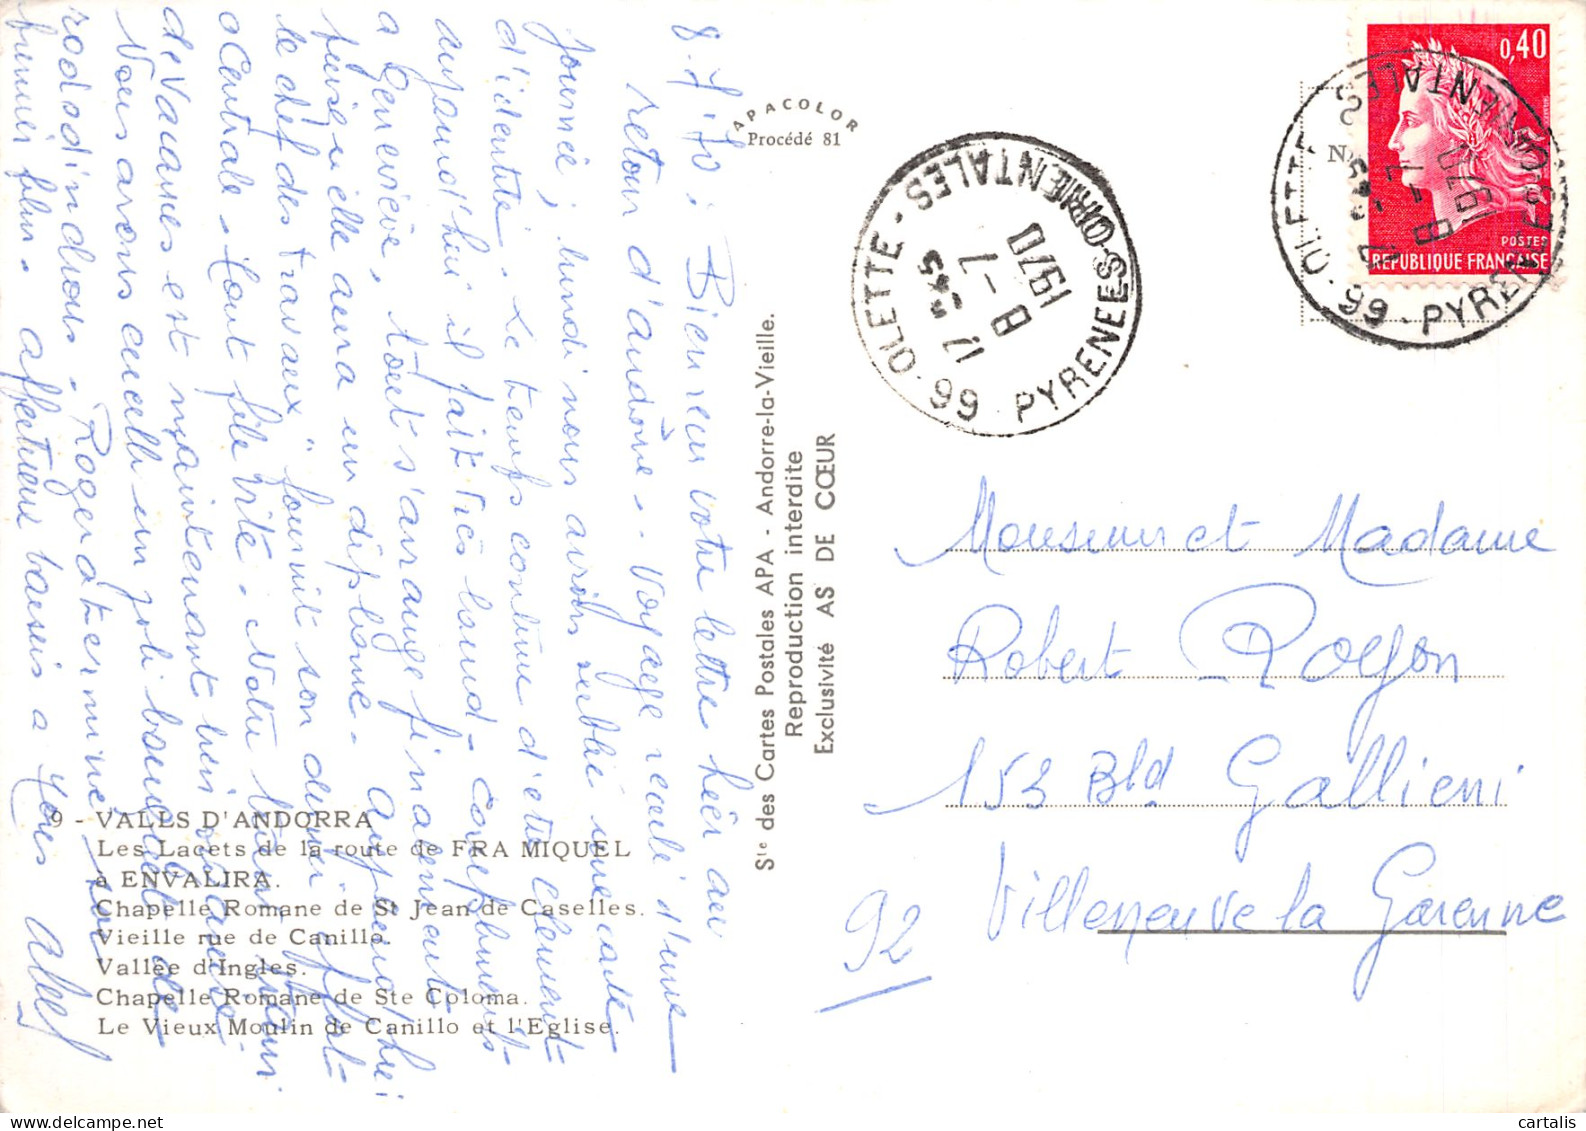 8-7-70 ; Bien reçu votre lettre hier au
retour d'andorre - - Voyage reculé d'une
journée ; lundi nous avions oublié une carte
d'identité. Le temps continue d'être clément
aujourd'hui il fait très lourd -
a Geneviève, tout s'arrange finalement
puisqu'elle aura un diplome - aujourd'hui
le chef des travaux fournit son devoir
Centrale - tout file vite - Notre temps
de Vacances est maintenant bien
Nous avons cueilli un joli bouquet de
rododindrons - Roger a terminé son
premier film - affectueux baisers a Tous
APACOLOR
Procédé 81
9 - VALLS D'ANDORRA
Les Lacets de la route de FRA MIQUEL
à ENVALIRA.
Chapelle Romane de St Jean de Caselles.
Vieille rue de Canillo.
Vallée d'Ingles.
Chapelle Romane de Ste Coloma.
Le Vieux Moulin de Canillo et l'Eglise.
Ste des Cartes Postales APA - Andorre-la-Vieille.
Reproduction interdite
Exclusivité AS DE CŒUR
OLETTE - 66 - PYRENEES-ORIENTALES
17 H 45
8 - 7
1970
0,40
POSTES
REPUBLIQUE FRANÇAISE
OLETTE - 66 - PYRENEES-ORIENTALES
8 - 7
1970
Monsieur et Madame
Robert
153 Bld Gallieni
92 Villeneuve la Garenne
cartalis